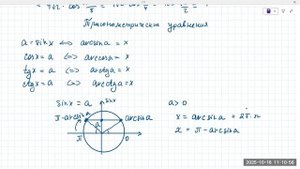 Тригонометрические уравнения
a = sin x <=> arcsin a = x
cos x = a <=> arccos a = x
tg x = a <=> arctg a = x
ctg x = a <=> arcctg a = x
sin x = a
sin x
a > 0
π - arcsin a
a
arcsin a
x = arcsin a + 2π·n
x = π - arcsin a
π
0
2025-10-16 11:10:56